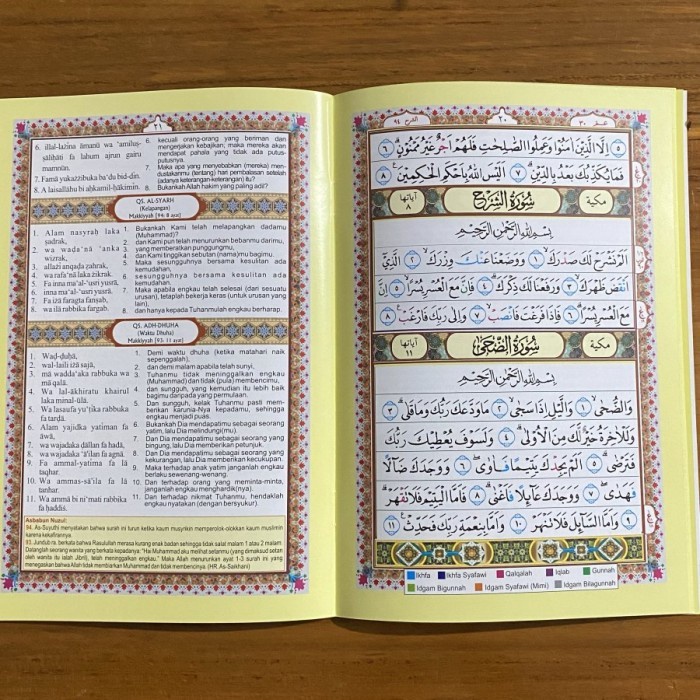 ٢١
6. illal-lażīna āmanū wa 'amiluṣ-
ṣāliḥāti fa lahum ajrun gairu
mamnūn.
7. Famā yukażżibuka ba'du bid-dīn.
8. A laisallāhu bi aḥkamil-ḥākimīn.
6. kecuali orang-orang yang beriman dan
mengerjakan kebajikan; maka mereka akan
mendapat pahala yang tidak ada putus-
putusnya.
7. Maka apa yang menyebabkan (mereka) men-
dustakanmu (tentang) hari pembalasan setelah
(adanya keterangan-keterangan) itu?
8. Bukankah Allah hakim yang paling adil?
QS. AL-SYARH
(Kelapangan)
Makkiyyah [94: 8 ayat]
1. Alam nasyraḥ laka
ṣadrak,
2. wa waḍa'nā 'anka
wizrak,
3. allażī anqaḍa ẓahrak,
4. wa rafa'nā laka żikrak.
5. Fa inna ma'al-'usri yusrā,
6. inna ma'al-'usri yusrā.
7. Fa iżā faragta fanṣab,
8. wa ilā rabbika fargab.
1. Bukankah Kami telah melapangkan dadamu
(Muhammad)?
2. dan Kami pun telah menurunkan bebanmu darimu,
3. yang memberatkan punggungmu,
4. dan Kami tinggikan sebutan (nama)mu bagimu.
5. Maka sesungguhnya bersama kesulitan ada
kemudahan,
6. sesungguhnya bersama kesulitan ada
kemudahan.
7. Maka apabila engkau telah selesai (dari sesuatu
urusan), tetaplah bekerja keras (untuk urusan yang
lain),
8. dan hanya kepada Tuhanmulah engkau berharap.
QS. ADH-DHUHA
(Waktu Dhuha)
Makkiyyah [93: 11 ayat]
1. Waḍ-ḍuḥā,
2. wal-laili iżā sajā,
3. mā wadda'aka rabbuka wa
mā qalā.
4. Wa lal-ākhiratu khairul
laka minal-ūlā.
5. Wa lasaufa yu'ṭīka rabbuka
fa tarḍā.
6. Alam yajidka yatīman fa
āwā,
7. wa wajadaka ḍāllan fa hadā,
8. wa wajadaka 'ā'ilan fa agnā.
9. Fa ammal-yatīma fa lā
taqhar.
10. Wa ammas-sā'ila fa lā
tanhar.
11. Wa ammā bi ni'mati rabbika
fa ḥaddiṡ.
1. Demi waktu dhuha (ketika matahari naik
sepenggalah),
2. dan demi malam apabila telah sunyi,
3. Tuhanmu tidak meninggalkan engkau
(Muhammad) dan tidak (pula) membencimu,
4. dan sungguh, yang kemudian itu lebih baik
bagimu daripada yang permulaan.
5. Dan sungguh, kelak Tuhanmu pasti mem-
berikan karunia-Nya kepadamu, sehingga
engkau menjadi puas.
6. Bukankah Dia mendapatimu sebagai seorang
yatim, lalu Dia melindungi(mu).
7. Dan Dia mendapatimu sebagai seorang yang
bingung, lalu Dia memberikan petunjuk.
8. Dan Dia mendapatimu sebagai seorang yang
kekurangan, lalu Dia memberikan kecukupan.
9. Maka terhadap anak yatim janganlah engkau
berlaku sewenang-wenang.
10. Dan terhadap orang yang meminta-minta,
janganlah engkau menghardik(nya).
11. Dan terhadap nikmat Tuhanmu, hendaklah
engkau nyatakan (dengan bersyukur).
Asbabun Nuzul:
94. As-Suyuthi menyatakan bahwa surah ini turun ketika kaum musyrikin memperolok-olokkan kaum muslimin
karena kekafirannya.
93. Jundub ra. berkata bahwa Rasulullah merasa kurang enak badan sehingga tidak salat malam 1 atau 2 malam.
Datanglah seorang wanita yang berkata kepadanya: "Hai Muhammad aku melihat setanmu (yang dimaksud setan
oleh wanita itu ialah Jibril), telah meninggalkan engkau." Maka Allah menurunkan ayat 1-3 surah ini yang
menegaskan bahwa Allah tidak membiarkan Muhammad dan tidak membencinya. (HR. As-Saikhani)
الشرح ٩٤
٢٠
عمّ ٣٠
٥ اِلَّا الَّذِيْنَ اٰمَنُوْا وَعَمِلُوا الصّٰلِحٰتِ فَلَهُمْ اَجْرٌ غَيْرُ مَمْنُوْنٍ ٦
فَمَا يُكَذِّبُكَ بَعْدُ بِالدِّيْنِ ٧ اَلَيْسَ اللّٰهُ بِاَحْكَمِ الْحٰكِمِيْنَ ٨
مكية
سُوْرَةُ الشَّرْحِ
آياتها
٨
بِسْمِ اللّٰهِ الرَّحْمٰنِ الرَّحِيْمِ
اَلَمْ نَشْرَحْ لَكَ صَدْرَكَ ١ وَوَضَعْنَا عَنْكَ وِزْرَكَ ٢ الَّذِيْٓ
اَنْقَضَ ظَهْرَكَ ٣ وَرَفَعْنَا لَكَ ذِكْرَكَ ٤ فَاِنَّ مَعَ الْعُسْرِ يُسْرًا ٥ اِنَّ
مَعَ الْعُسْرِ يُسْرًا ٦ فَاِذَا فَرَغْتَ فَانْصَبْ ٧ وَاِلٰى رَبِّكَ فَارْغَبْ ٨
مكية
سُوْرَةُ الضُّحٰى
آياتها
١١
بِسْمِ اللّٰهِ الرَّحْمٰنِ الرَّحِيْمِ
وَالضُّحٰى ١ وَالَّيْلِ اِذَا سَجٰى ٢ مَا وَدَّعَكَ رَبُّكَ وَمَا قَلٰى ٣
وَلَلْاٰخِرَةُ خَيْرٌ لَّكَ مِنَ الْاُوْلٰى ٤ وَلَسَوْفَ يُعْطِيْكَ رَبُّكَ
فَتَرْضٰى ٥ اَلَمْ يَجِدْكَ يَتِيْمًا فَاٰوٰى ٦ وَوَجَدَكَ ضَآلًّا
فَهَدٰى ٧ وَوَجَدَكَ عَآئِلًا فَاَغْنٰى ٨ فَاَمَّا الْيَتِيْمَ فَلَا تَقْهَرْ
٩ وَاَمَّا السَّآئِلَ فَلَا تَنْهَرْ ١٠ وَاَمَّا بِنِعْمَةِ رَبِّكَ فَحَدِّثْ ١١
Ikhfa Ikhfa Syafawi Qalqalah Iqlab Gunnah
Idgam Bigunnah Idgam Syafawi (Mimi) Idgam Bilagunnah